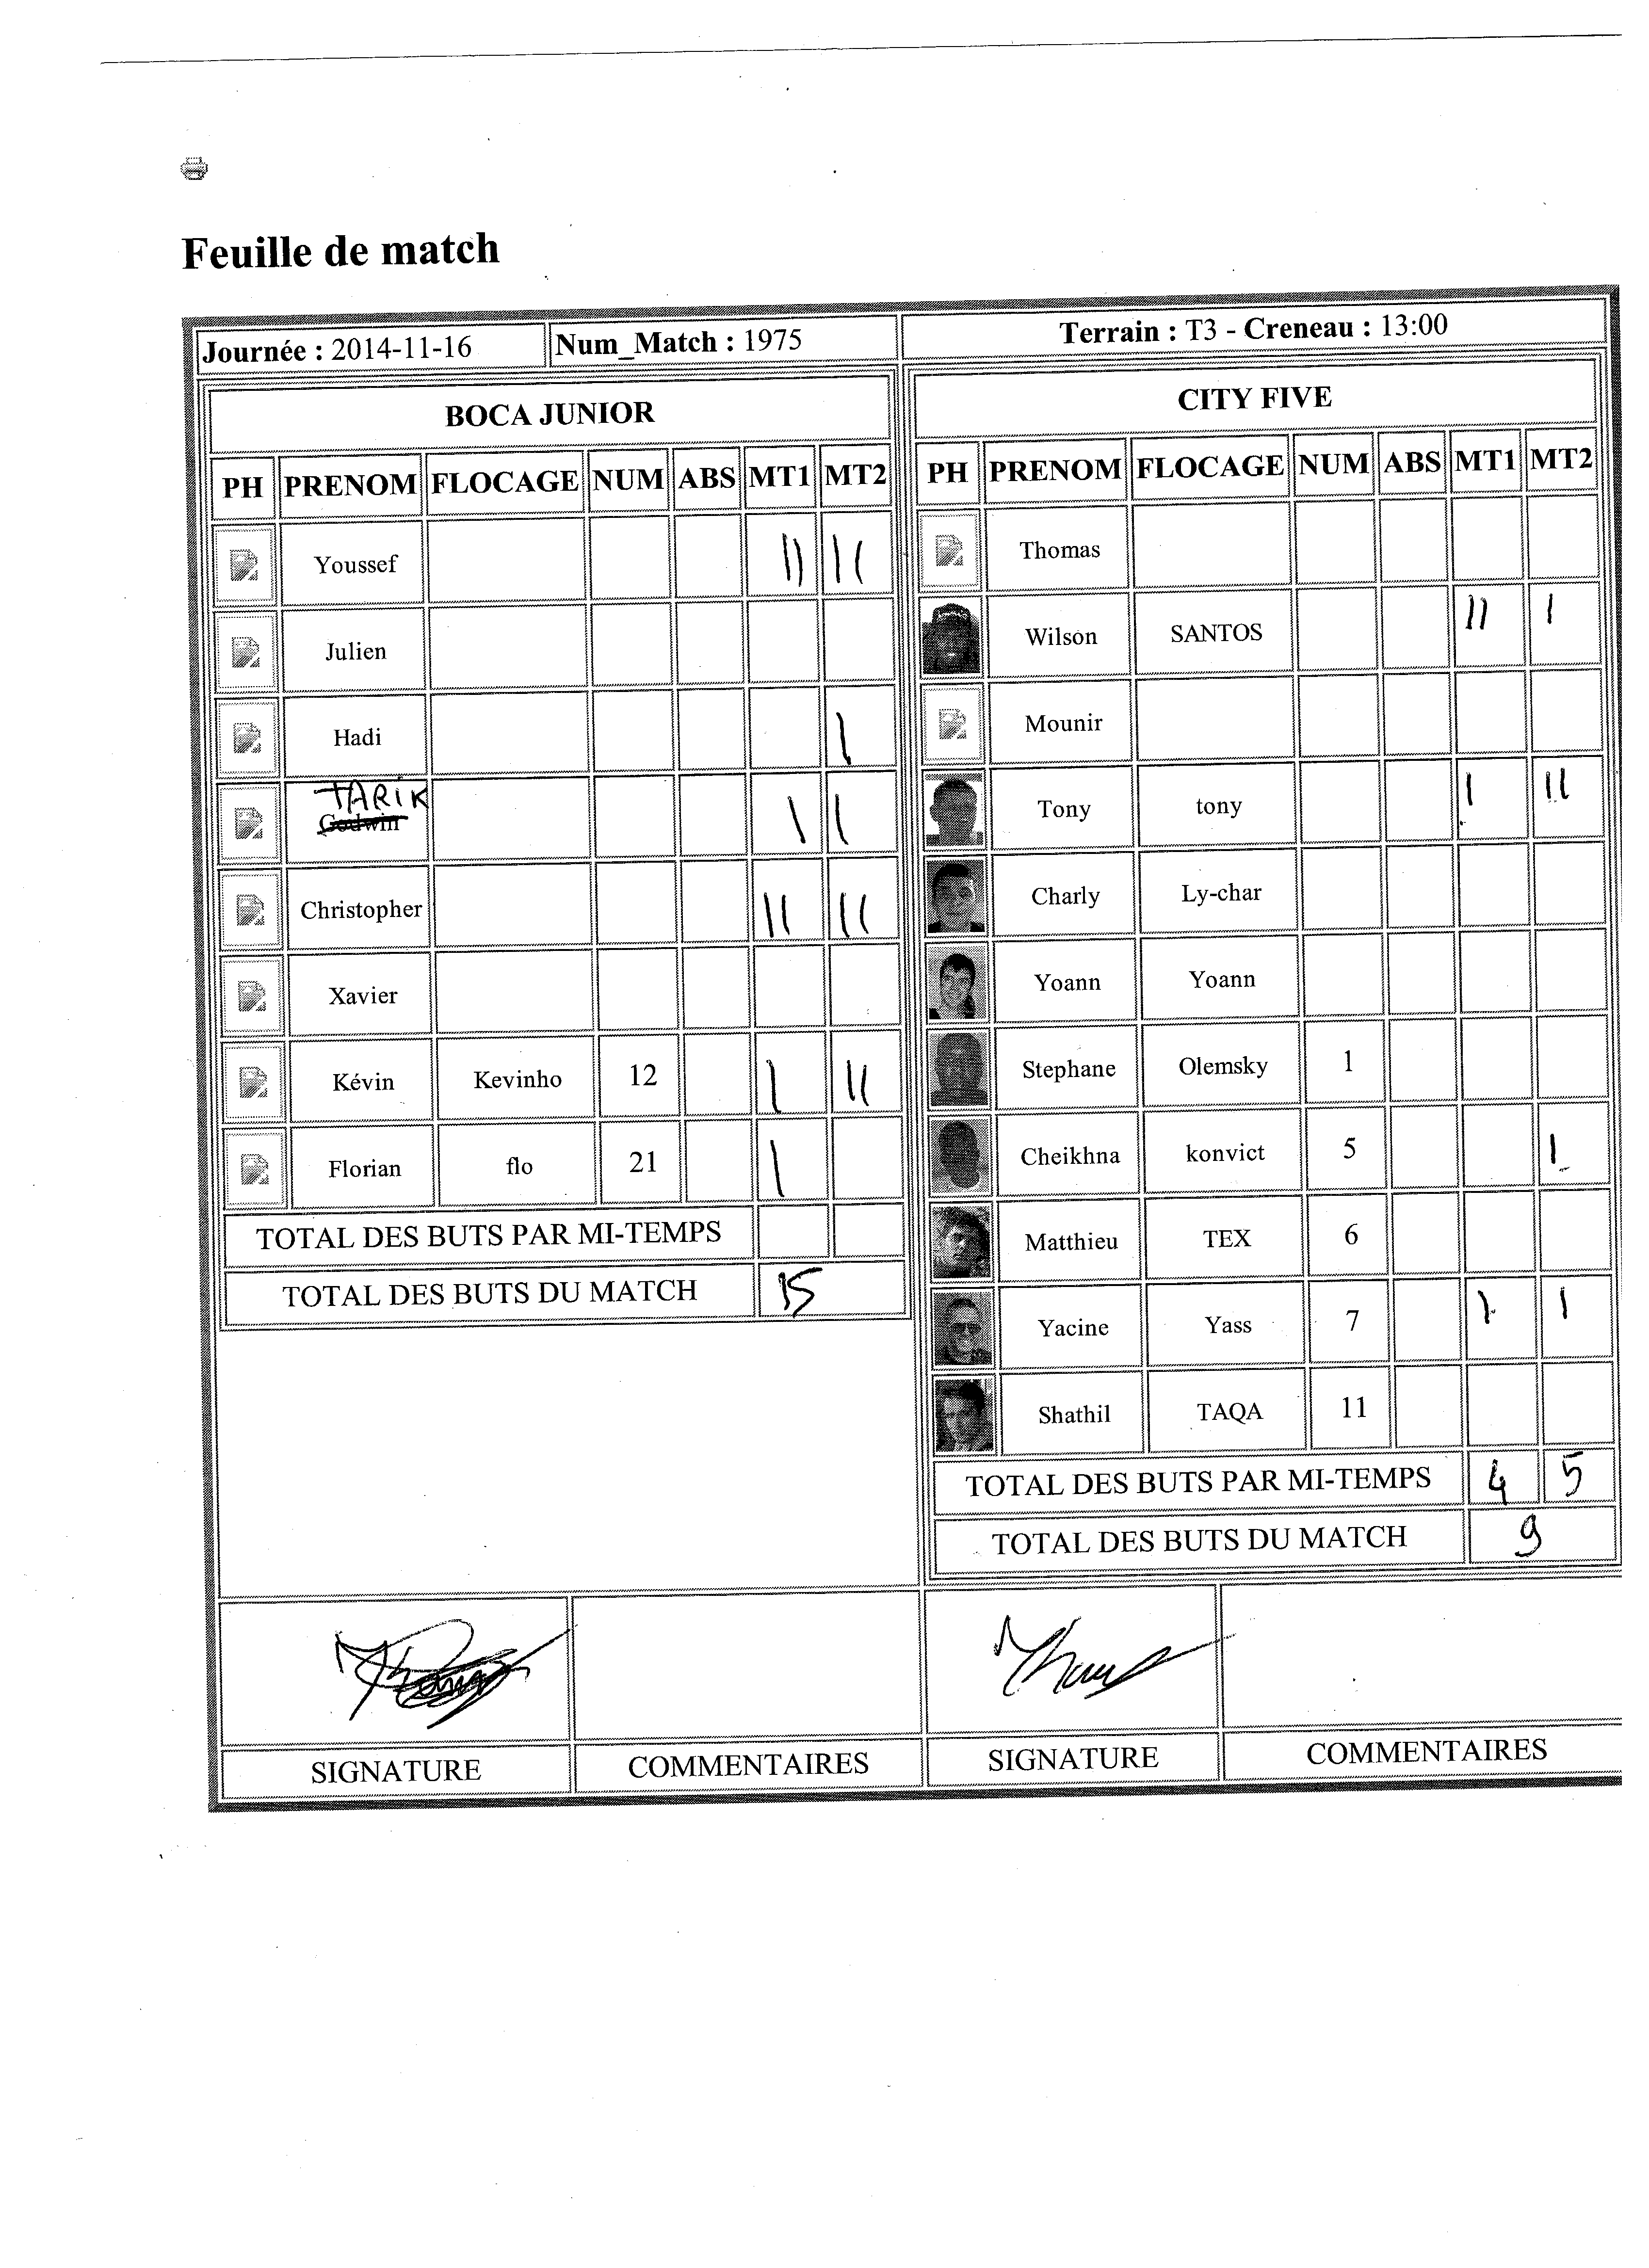 Feuille de match
Journée : 2014-11-16 Num_Match : 1975 Terrain : T3 - Creneau : 13:00
BOCA JUNIOR
PH PRENOM FLOCAGE NUM ABS MT1 MT2
Youssef || ||
Julien
Hadi |
TARIK
Godwin | |
Christopher || ||
Xavier
Kévin Kevinho 12 | ||
Florian flo 21 |
TOTAL DES BUTS PAR MI-TEMPS
TOTAL DES BUTS DU MATCH 15
CITY FIVE
PH PRENOM FLOCAGE NUM ABS MT1 MT2
Thomas
Wilson SANTOS || |
Mounir
Tony tony | ||
Charly Ly-char
Yoann Yoann
Stephane Olemsky 1
Cheikhna konvict 5 |
Matthieu TEX 6
Yacine Yass 7 | |
Shathil TAQA 11
TOTAL DES BUTS PAR MI-TEMPS 4 5
TOTAL DES BUTS DU MATCH 9
SIGNATURE COMMENTAIRES SIGNATURE COMMENTAIRES